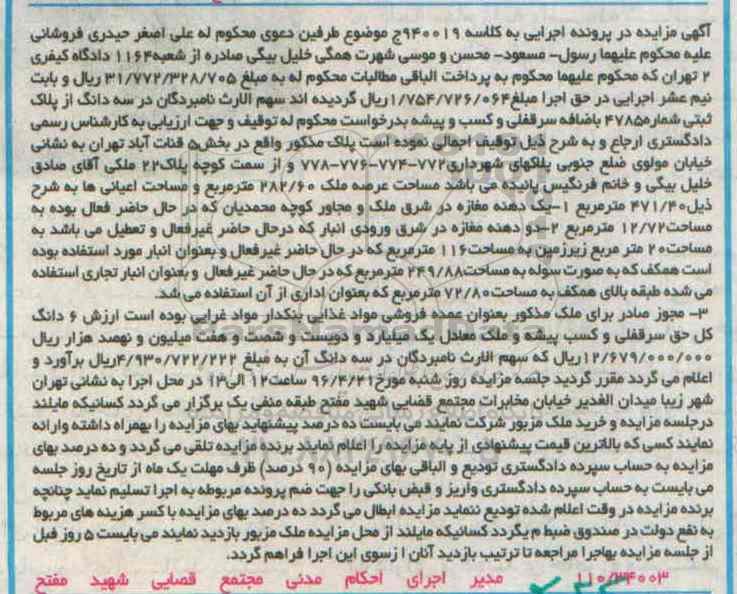 آگهی مزایده در پرونده اجرایی به کلاسه ۹۴۰۰۱۹ج موضوع طرفین دعوی محکوم له علی اصغر حیدری فروشانی
علیه محکوم علیهما رسول- مسعود- محسن و موسی شهرت همگی خلیل بیگی صادره از شعبه۱۱۶۴ دادگاه کیفری
۲ تهران که محکوم علیهما محکوم به پرداخت الباقی مطالبات محکوم له به مبلغ ۳۱/۷۷۲/۳۲۸/۷۰۵ ریال و بابت
نیم عشر اجرایی در حق اجرا مبلغ۱/۷۵۴/۷۲۶/۰۶۴ریال گردیده اند سهم الارث نامبردگان در سه دانگ از پلاک
ثبتی شماره۴۷۸۵ باضافه سرقفلی و کسب و پیشه بدرخواست محکوم له توقیف و جهت ارزیابی به کارشناس رسمی
دادگستری ارجاع و به شرح ذیل توقیف اجمالی نموده است پلاک مذکور واقع در بخش۵ قنات آباد تهران به نشانی
خیابان مولوی ضلع جنوبی پلاکهای شهرداری۷۷۲-۷۷۴-۷۷۶-۷۷۸ و از سمت کوچه پلاک۲۲ ملکی آقای صادق
خلیل بیگی و خانم فرنگیس پائیده می باشد مساحت عرصه ملک ۲۸۲/۶۰ مترمربع و مساحت اعیانی ها به شرح
ذیل۴۷۱/۴۰ مترمربع ۱-یک دهنه مغازه در شرق ملک و مجاور کوچه محمدیان که در حال حاضر فعال بوده به
مساحت۱۲/۷۲ مترمربع ۲-دو دهنه مغازه در شرق ورودی انبار که درحال حاضر غیرفعال و تعطیل می باشد به
مساحت۲۰ متر مربع زیرزمین به مساحت۱۱۶ مترمربع که در حال حاضر غیرفعال و بعنوان انبار مورد استفاده بوده
است همکف که به صورت سوله به مساحت۲۴۹/۸۸ مترمربع که در حال حاضر غیرفعال و بعنوان انبار تجاری استفاده
می شده طبقه بالای همکف به مساحت۷۲/۸۰ مترمربع که بعنوان اداری از آن استفاده می شد.
۳- مجوز صادر برای ملک مذکور بعنوان عمده فروشی مواد غذایی بنکدار مواد غرایی بوده است ارزش ۶ دانگ
کل حق سرقفلی و کسب پیشه و ملک معادل یک میلیارد و دویست و شصت و هفت میلیون و نهصد هزار ریال
۱۲/۶۷۹/۰۰۰/۰۰۰ریال که سهم الارث نامبردگان در سه دانگ آن به مبلغ ۴/۹۳۰/۷۲۲/۲۲۲ریال برآورد و
اعلام می گردد مقرر گردید جلسه مزایده روز شنبه مورخ۹۶/۴/۲۱ ساعت۱۲ الی۱۳ در محل اجرا به نشانی تهران
شهر زیبا میدان الغدیر خیابان مخابرات مجتمع قضایی شهید مفتح طبقه منفی یک برگزار می گردد کسانیکه مایلند
درجلسه مزایده و خرید ملک مزبور شرکت نمایند می بایست ده درصد پیشنهاید بهای مزایده را بهمراه داشته وارائه
نمایند کسی که بالاترین قیمت پیشنهادی از پایه مزایده را اعلام نمایند برنده مزایده تلقی می گردد و ده درصد بهای
مزایده به حساب سپرده دادگستری تودیع و الباقی بهای مزایده (۹۰ درصد) ظرف مهلت یک ماه از تاریخ روز جلسه
می بایست به حساب سپرده دادگستری واریز و قبض بانکی را جهت ضم پرونده مربوطه به اجرا تسلیم نماید چنانچه
برنده مزایده در وقت اعلام شده تودیع ننماید مزایده ابطال می گردد ده درصد بهای مزایده با کسر هزینه های مربوط
به نفع دولت در صندوق ضبط م یگردد کسانیکه مایلند از محل مزایده ملک مزبور بازدید نمایند می بایست ۵ روز قبل
از جلسه مزایده بهاجرا مراجعه تا ترتیب بازدید آنان ا زسوی این اجرا فراهم گردد.
۱۱۰/۳۴۰۰۳ مدیر اجرای احکام مدنی مجتمع قضایی شهید مفتح